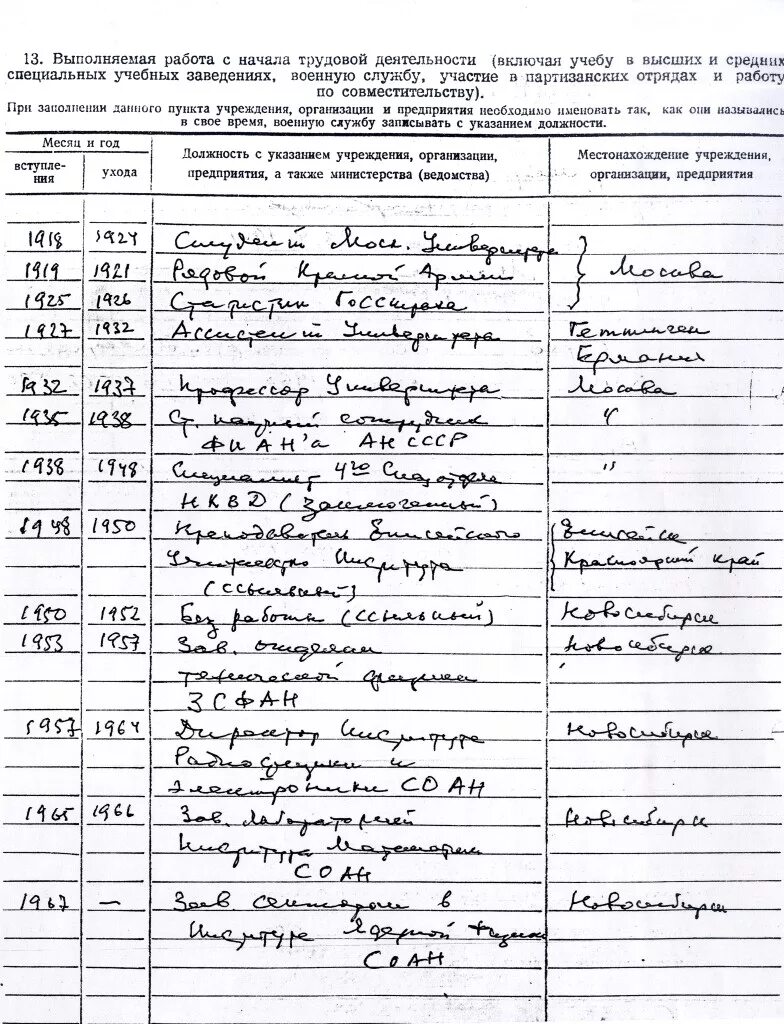 13. Выполняемая работа с начала трудовой деятельности (включая учебу в высших и средних
специальных учебных заведениях, военную службу, участие в партизанских отрядах и работу
по совместительству).
При заполнении данного пункта учреждения, организации и предприятия необходимо именовать так, как они назывались
в свое время, военную службу записывать с указанием должности.
Месяц и год
вступле-
ния
ухода
Должность с указанием учреждения, организации,
предприятия, а также министерства (ведомства)
Местонахождение учреждения,
организации, предприятия
1918 1924 Студент Моск. Университета
1919 1921 Рядовой Красной Армии Москва
1925 1926 Статистик Госстраха
1927 1932 Ассистент Университета Геттинген
Германия
1932 1937 Профессор Университета Москва
1935 1938 Ст. научный сотрудник "
ФИАН'а АН СССР
1938 1948 Специалист 4го Спецотдела "
НКВД (Заключенный)
1948 1950 Преподаватель Енисейского Енисейск
Учительского Института Красноярский край
(ссыльный)
1950 1952 Без работы (ссыльный) Новосибирск
1953 1957 Зав. отделом Новосибирск
технической физики
ЗСФАН
1957 1964 Директор Института Новосибирск
Радиофизики и
электроники СО АН
1965 1966 Зав. Лабораторией Новосибирск
Института Математики
СОАН
1967 — Зав сектором в Новосибирск
Институте Ядерной Физики
СОАН